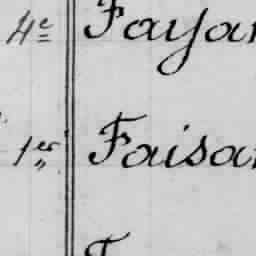 4e Fayar
1er Faisar